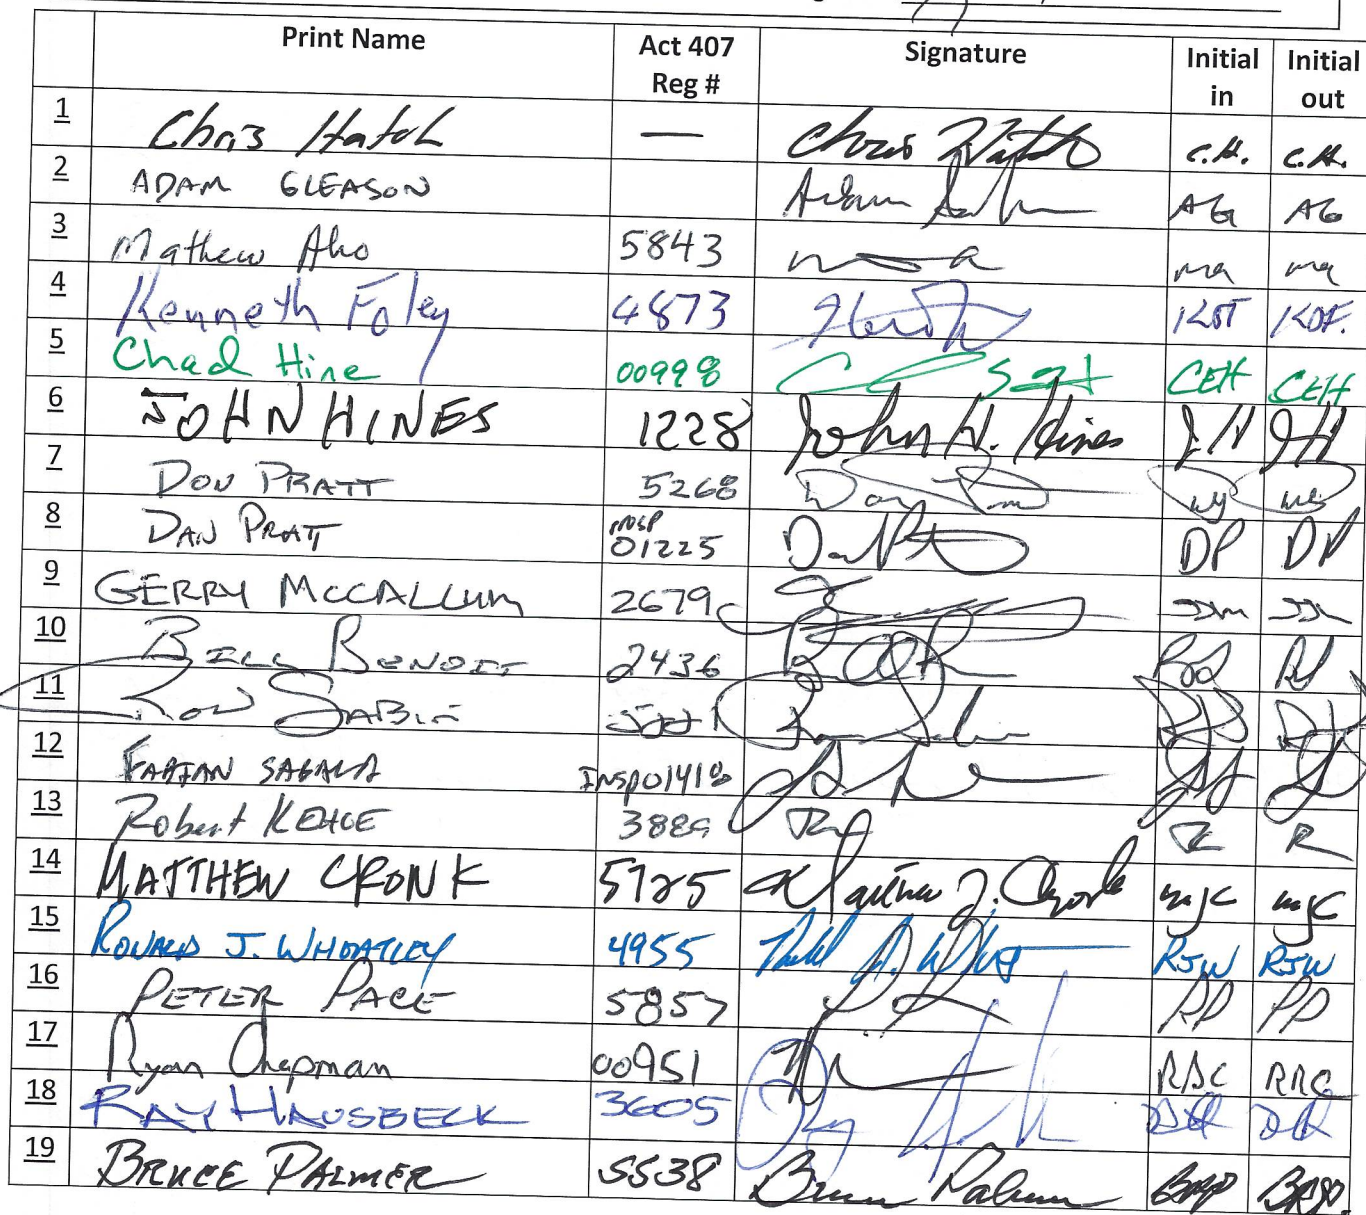 Print Name Act 407 Reg # Signature Initial in Initial out
1 Chris Hatch — Chris Hatch C.H. C.H.
2 ADAM GLEASON Adam AG AG
3 Mathew Aho 5843 ma ma
4 Kenneth Foley 4873 KDF KDF.
5 Chad Hine 00998 CEH CEH
6 JOHN HINES 1228 John H. Hines JH JH
7 DON PRATT 5268 Don
8 DAN PRATT INSP 01225 Dan P DP DP
9 GERRY MCCALLUM 2679 JJM
10 BILL BENOIT 2436
11 RON SABIN
12 FABIAN SAGALA INSP01418
13 Robert KEHOE 388 R R
14 MATTHEW CRONK 5725 Matthew J. Cronk MJC MJC
15 RONALD J. WHEATLEY 4955 RJW RJW
16 PETER PACE 5857 PP PP
17 Ryan Chapman 00951 RBC
18 RAY HAUSBECK 3605 Ray
19 BRUCE PALMER 5538 Bruce Palmer